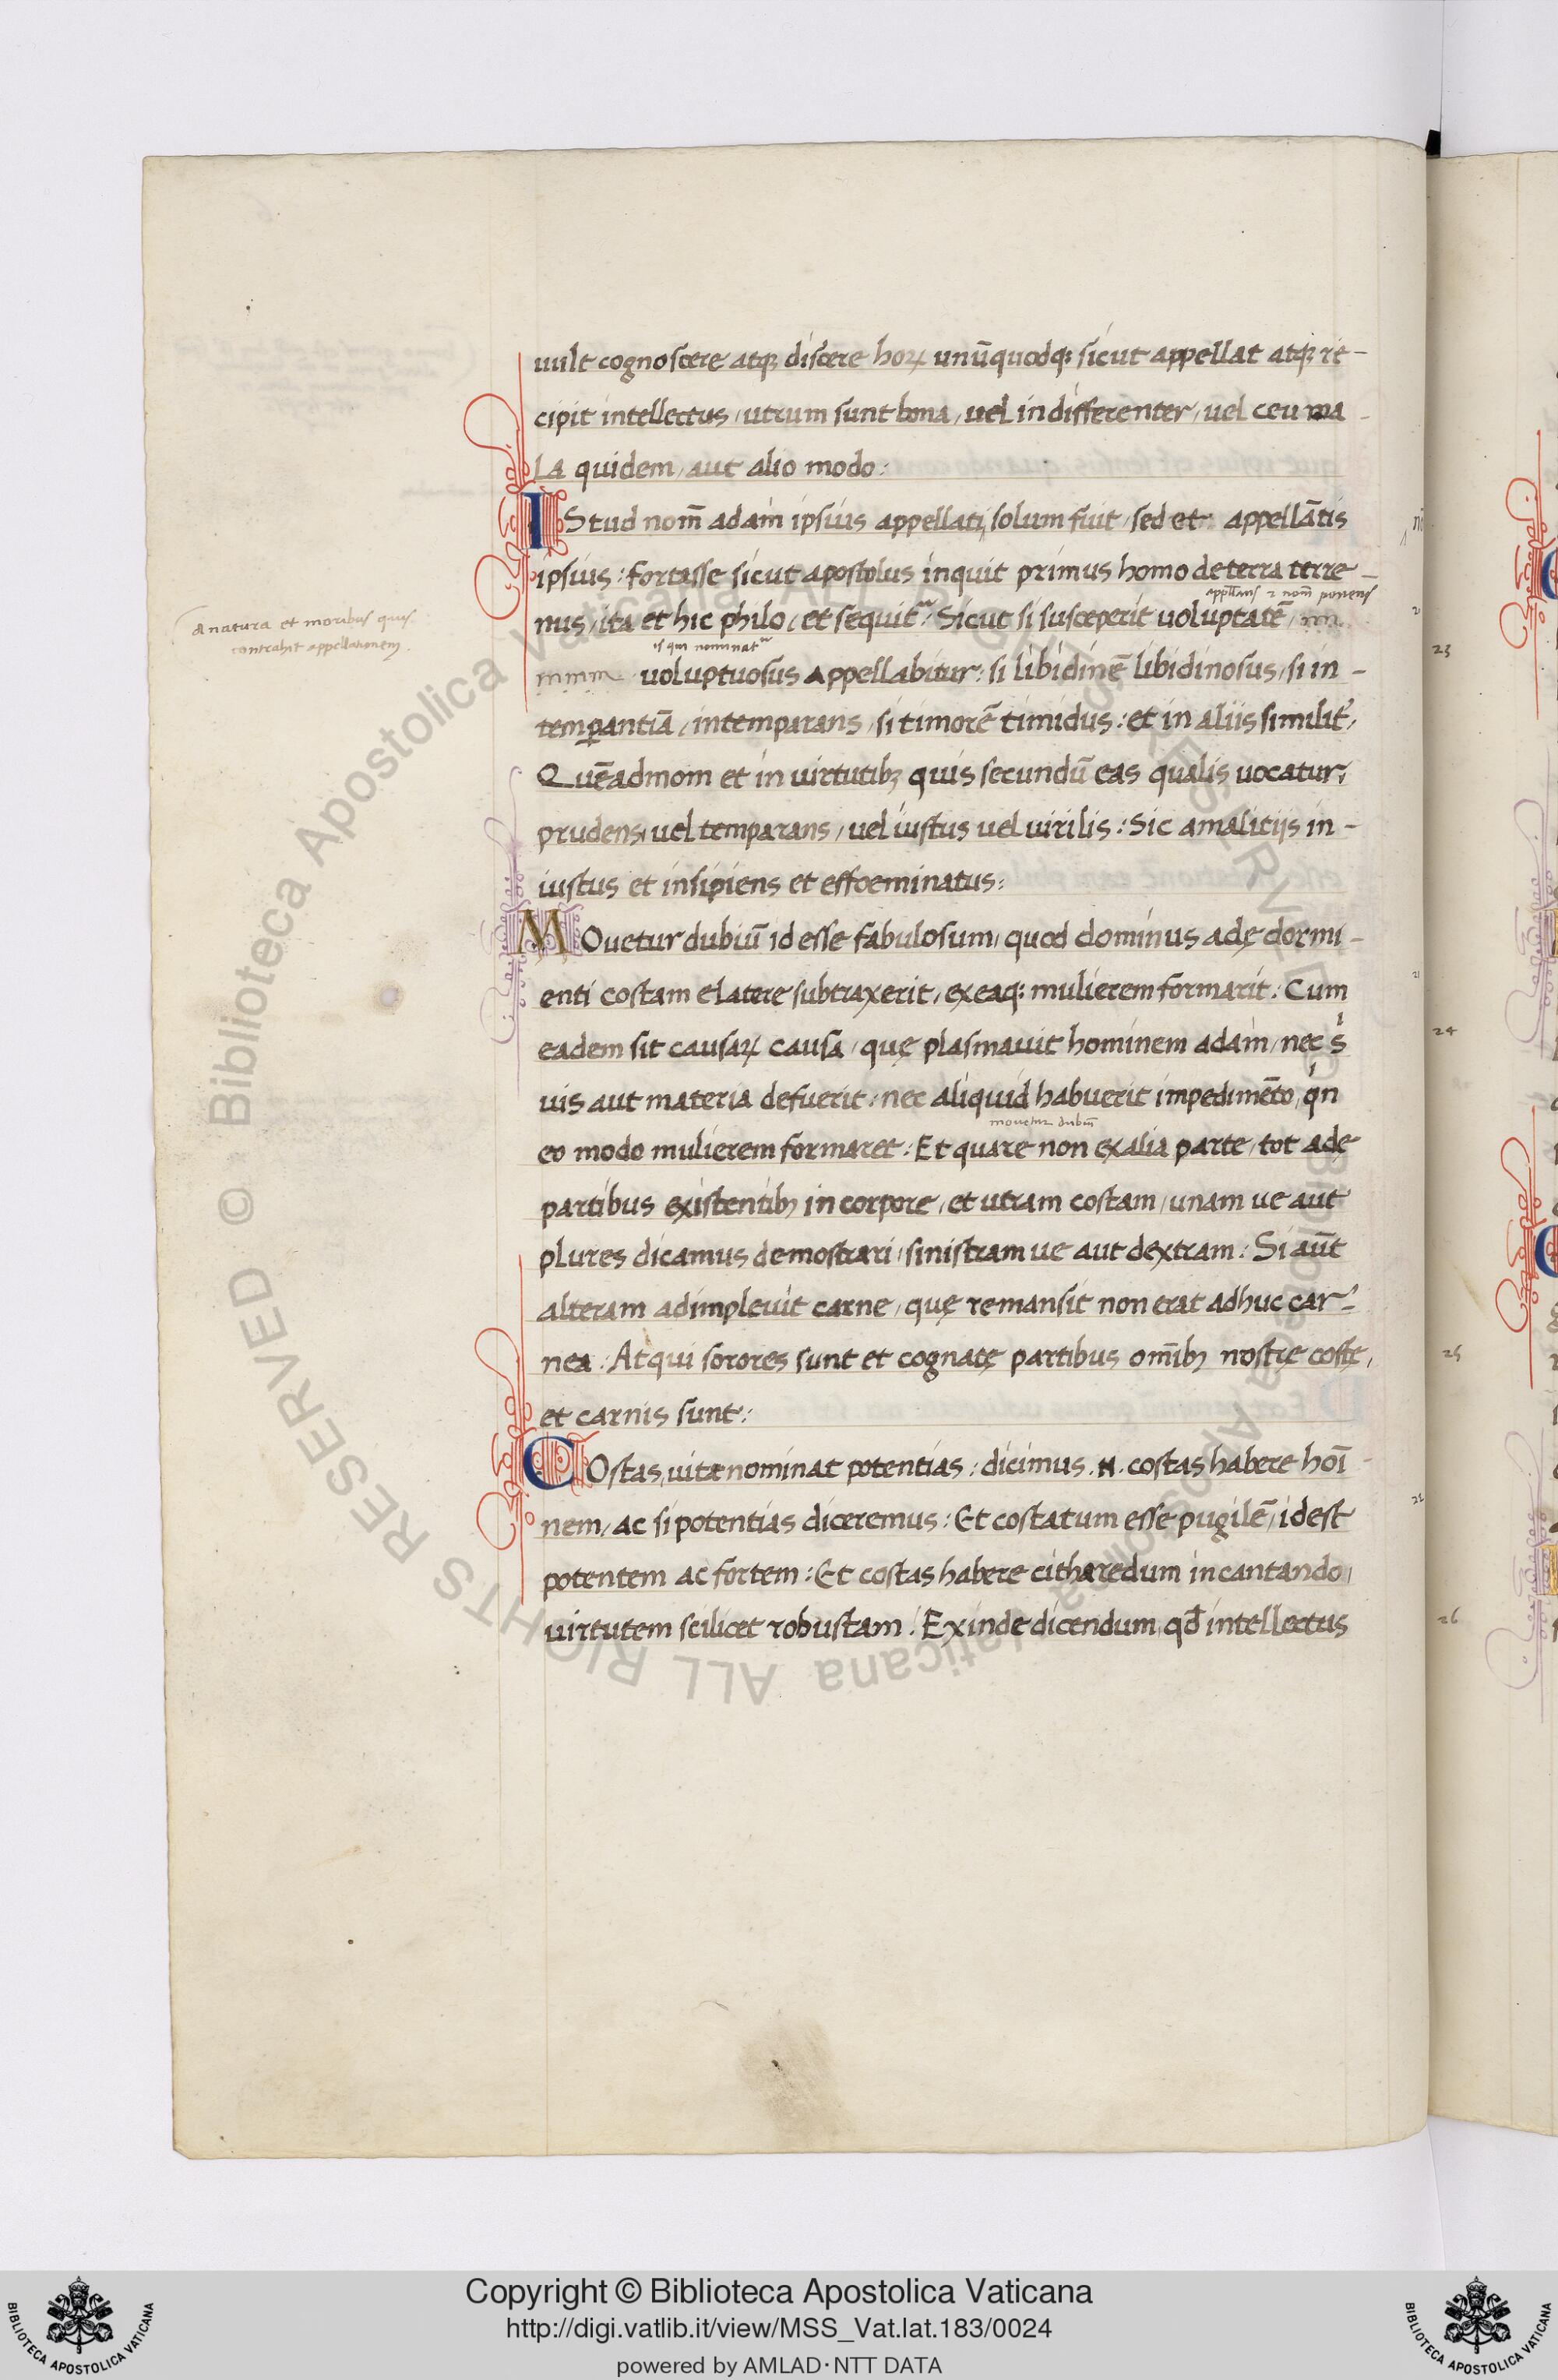 uult cognoscere atqꝫ discere hoꝝ unūquodqꝫ sicut appellat atqꝫ re-
cipit intellectus, utrum sunt bona, uel indifferenter, uel ceu ma
la quidem, aut alio modo:
IStud nom̄ adam ipsius appellati solum fuit, sed et appellātis
ipsius: fortasse sicut apostolus inquit primus homo de terra terre-
appellans nom̄ ponens
nus, ita et hic philo, et sequit̃: Sicut si susceperit uoluptatē,
a natura et moribus quis
contrahit appellationem.
is qui nominat̃
uoluptuosus appellabitur: si libidinē libidinosus, si in-
temꝑantiā, intemparans, si timorē timidus: et in aliis similit̃,
Quēadmom et in uirtutibꝫ quis secundū eas qualis uocatur,
prudens, uel temparans, uel iustus uel uirilis: Sic a malitiis in-
iustus et insipiens et effoeminatus:
MOuetur dubiū id esse fabulosum, quod dominus adę dormi-
enti costam e latere subtraxerit, ex eaqꝫ mulierem formarit: Cum
eadem sit causaꝝ causa, quę plasmauit hominem adam, nec s
uis aut materia defuerit: nec aliquid habuerit impedimēto, qn
mouetur dubiū
eo modo mulierem formaret: Et quare non ex alia parte, tot adę
partibus existentibꝫ in corpore, et utram costam, unam ue aut
plures dicamus demostrari, sinistram ue aut dextram: Si aūt
alteram adimpleuit carne, quę remansit non erat adhuc car-
nea: Atqui sorores sunt et cognatę partibus om̄ibꝫ nostrę costę,
et carnis sunt:
COstas, uitæ nominat potentias: dicimus .N. costas habere hoī
nem, ac si potentias diceremus: Et costatum esse pugilē, id est
potentem ac fortem: Et costas habere citharedum in cantando,
uirtutem scilicet robustam: Exinde dicendum, qđ intellectus
23
24
25
26
© Biblioteca Apostolica Vaticana ALL RIGHTS RESERVED
Copyright © Biblioteca Apostolica Vaticana
http://digi.vatlib.it/view/MSS_Vat.lat.183/0024
powered by AMLAD·NTT DATA
BIBLIOTECA APOSTOLICA VATICANA
BIBLIOTECA APOSTOLICA VATICANA